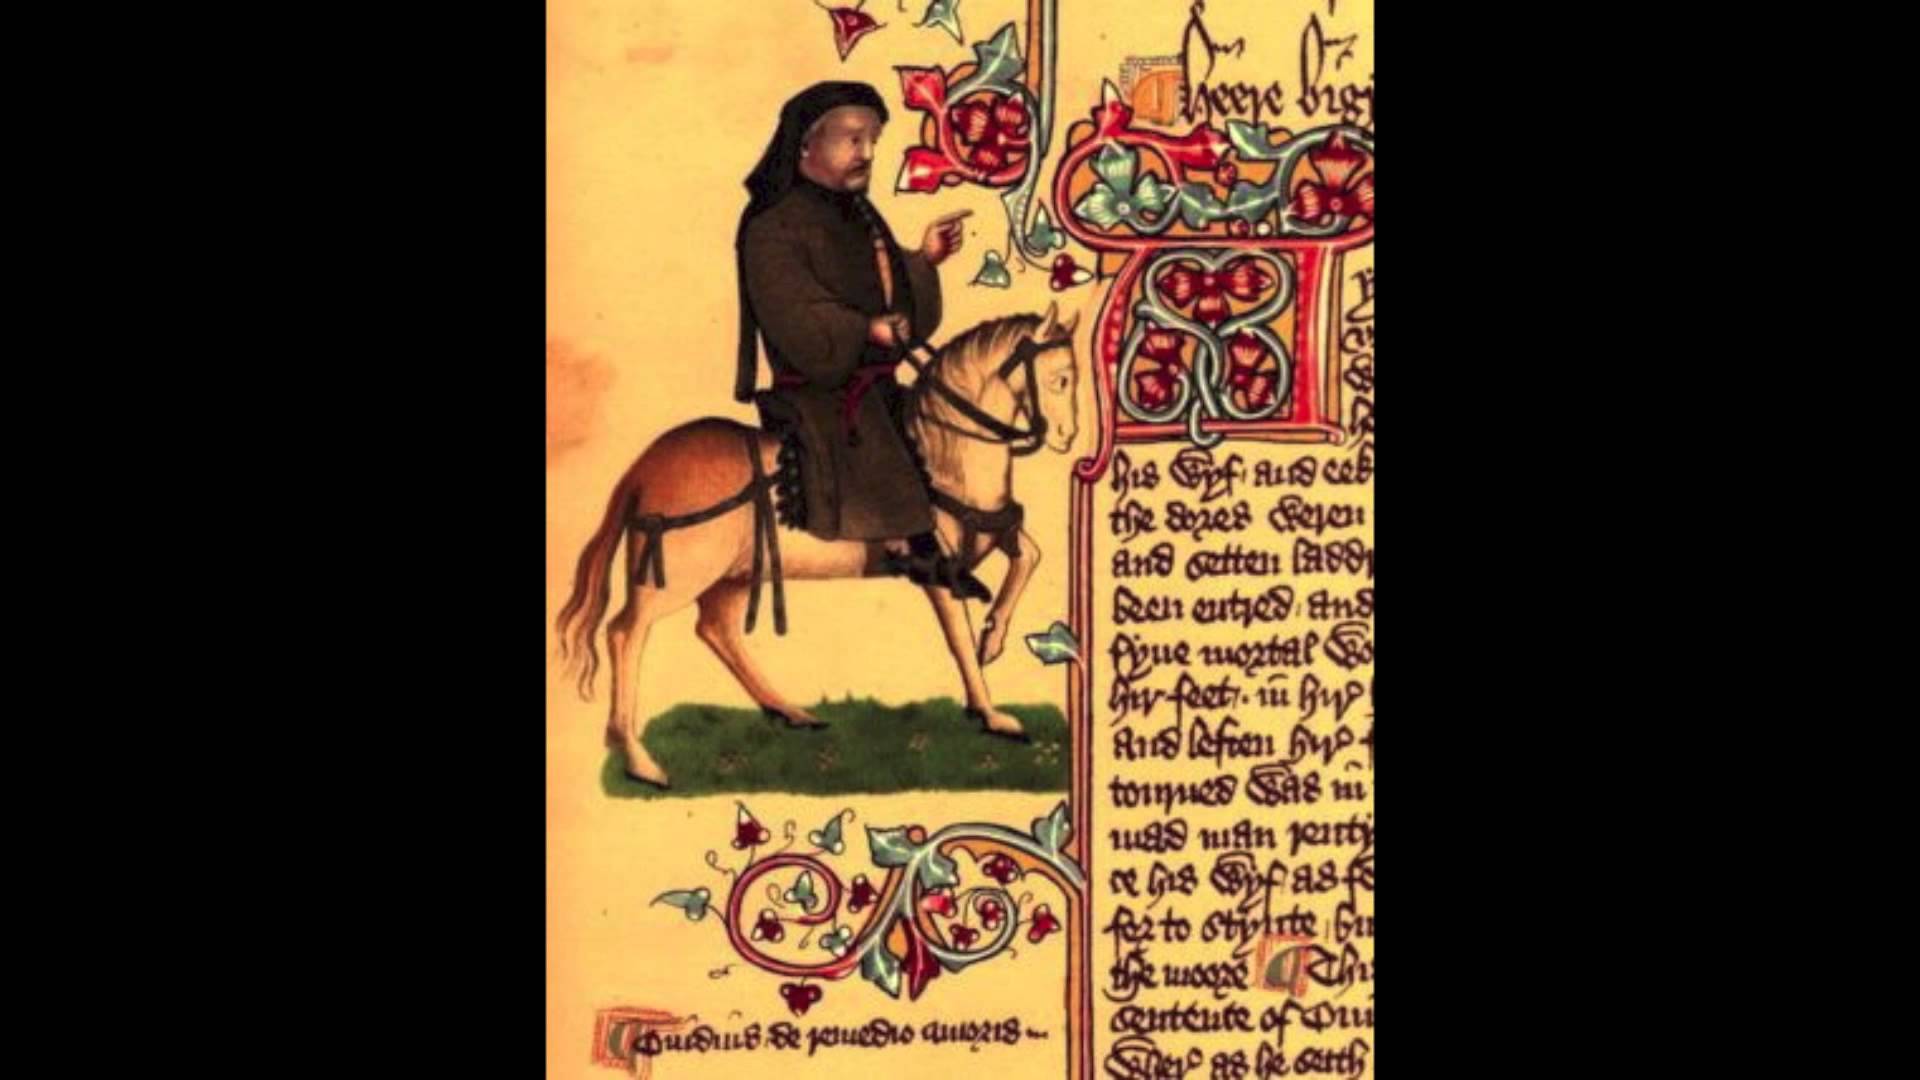 Heere bigi
his wyf and eek
the dores weren
and setten laddr
been entred and
fyue mortal wo
hir feet in hir
and leften hir f
tonned was in
mad man renty
ce his wyf as fe
fer to stynte bu
the moore Thi
sentence of Oui
wher as he seith
Ouidius de remedio amoris